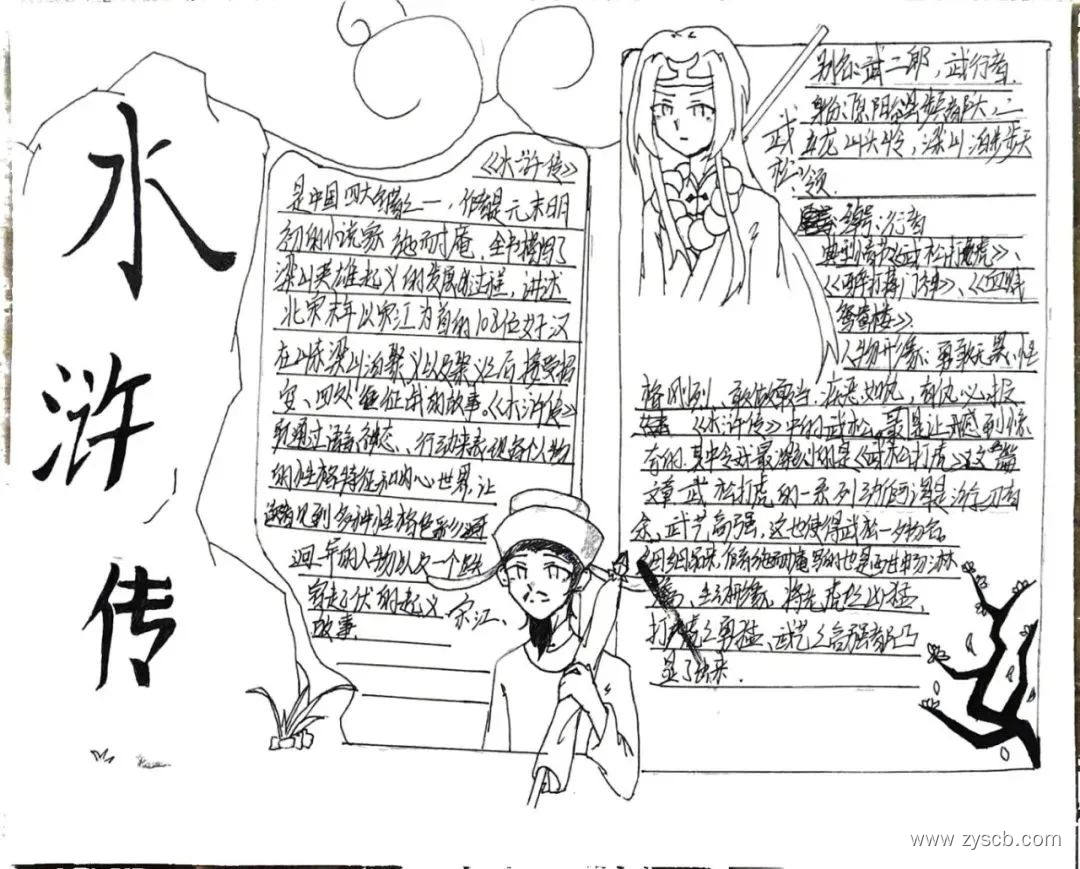 水
浒
传
《水浒传》
是中国四大名著之一,作者是元末明
初的小说家施耐庵。全书描写了
梁山英雄起义的发展过程,讲述
北宋末年以宋江为首的108位好汉
在山东梁山泊聚义以及聚义后接受招
安、四处征战的故事。《水浒传》
通过语言、行动来表现每个人物
的性格特征和内心世界,让
读者见到多种性格色彩
的人物以及一个
起伏的起义
故事.
宋江、
武松:
别名:武二郎,武行者.
身份:原阳谷县步兵都头,二
龙山头领,梁山泊步军头
领.
绰号:行者
典型情节《武松打虎》、
《醉打蒋门神》、《血溅
鸳鸯楼》.
人物形象:勇敢无畏,性
格刚烈、敢做敢当、疾恶如仇、有仇必报
《水浒传》中的武松,最是让我感到惊
奇的.其中令我最深刻的是《武松打虎》这篇
文章武松打虎的一系列动作可谓是游刃有
余,武艺高强,这也使得武松一
仔细品味,作者施耐庵写的也是
将老虎之凶猛,
打虎之勇猛、武艺之高强都凸
显了出来.
www.zyscb.com